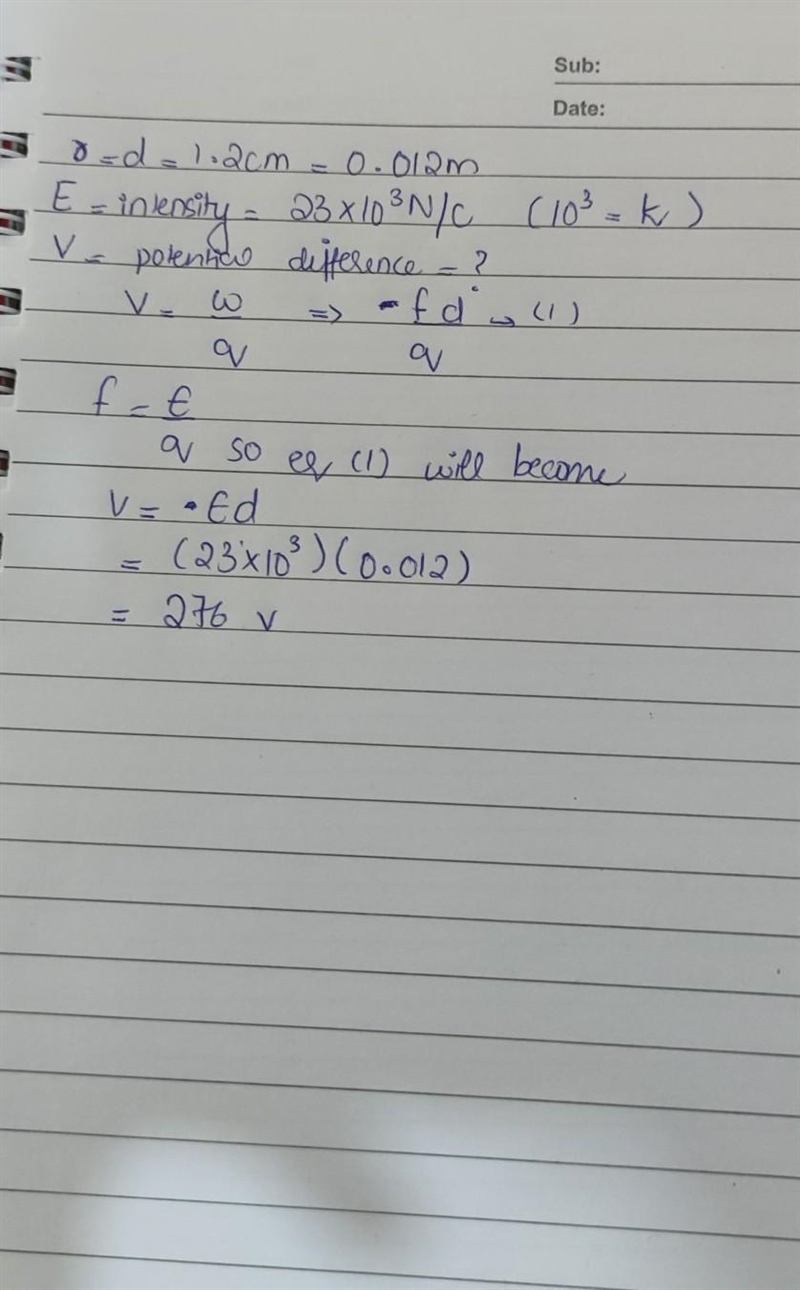 Sub:
Date:
r = d = 1.2cm = 0.012m
E = intensity = 23×10³N/C (10³ = k)
V = potential difference = ?
V = w/q => -fd/q → (1)
f = E/q so eq (1) will become
V = -Ed
= (23×10³)(0.012)
= 276 v